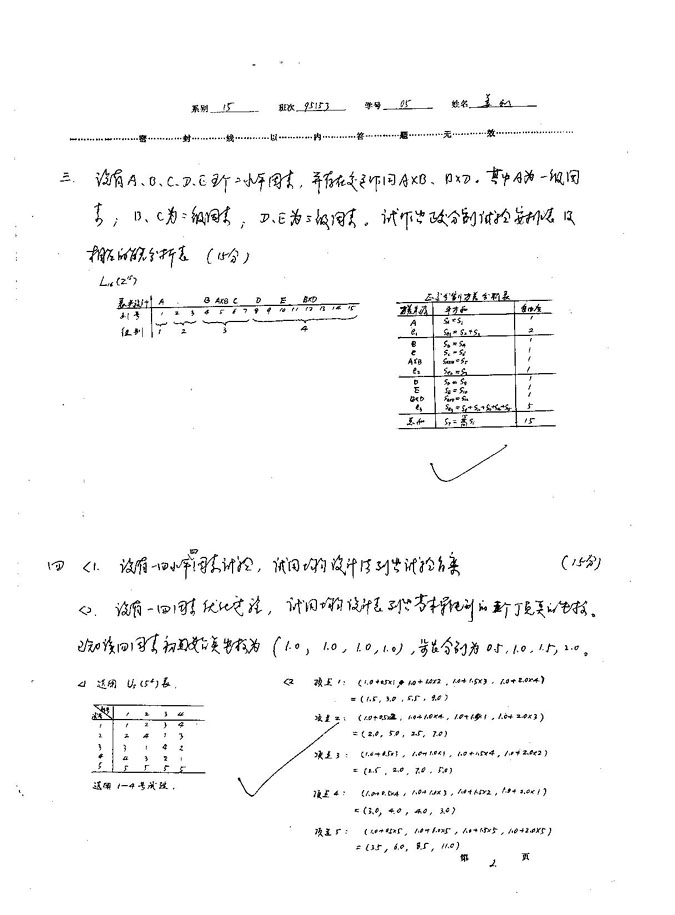 系别 15 班次 95153 学号 05 姓名
密 封 线 以 内 答 题 无 效
三. 设有A、B、C、D、E五个二水平因素, 并存在交互作用A×B、B×D。其中A为一级因
素; B、C为二级因素; D、E为三级因素。试作出三级分割试验安排表及
相应的方差分析表 (15分)
L₁₆(2¹⁵)
表头设计 A B A×B C D E B×D
列号 1 2 3 4 5 6 7 8 9 10 11 12 13 14 15
组别 1 2 3 4
三级分割方差分析表
方差来源 平方和 自由度
A S_A=S₁ 1
e₁ S_e₁=S₂+S₃ 2
B S_B=S₄ 1
C 1
A×B S_A×B=S₅ 1
e₂ 1
D 1
E 1
B×D 1
e₃ 5
总和 15
四 <1. 设有一四水平四因素试验, 试用均匀设计法列出试验方案 (15分)
<2. 设有一四因素优化试验, 试用均匀设计表列出单纯形的五个顶点的坐标。
已知该四因素初始点的坐标为 (1.0, 1.0, 1.0, 1.0), 步长分别为 0.5, 1.0, 1.5, 2.0。
<1 选用 U₅(5⁴)表.
列号 1 2 3 4
1 1 2 3 4
2 2 4 1 3
3 3 1 4 2
4 4 3 2 1
5 5 5 5 5
选用 1—4号试验.
<2 顶点1: (1.0+0.5×1, 1.0+1.0×2, 1.0+1.5×3, 1.0+2.0×4)
= (1.5, 3.0, 5.5, 9.0)
顶点2: (1.0+0.5×2, 1.0+1.0×4, 1.0+1.5×1, 1.0+2.0×3)
= (2.0, 5.0, 2.5, 7.0)
顶点3: (1.0+0.5×3, 1.0+1.0×1, 1.0+1.5×4, 1.0+2.0×2)
= (2.5, 2.0, 7.0, 5.0)
顶点4: (1.0+0.5×4, 1.0+1.0×3, 1.0+1.5×2, 1.0+2.0×1)
= (3.0, 4.0, 4.0, 3.0)
顶点5: (1.0+0.5×5, 1.0+1.0×5, 1.0+1.5×5, 1.0+2.0×5)
= (3.5, 6.0, 8.5, 11.0)
第 2 页